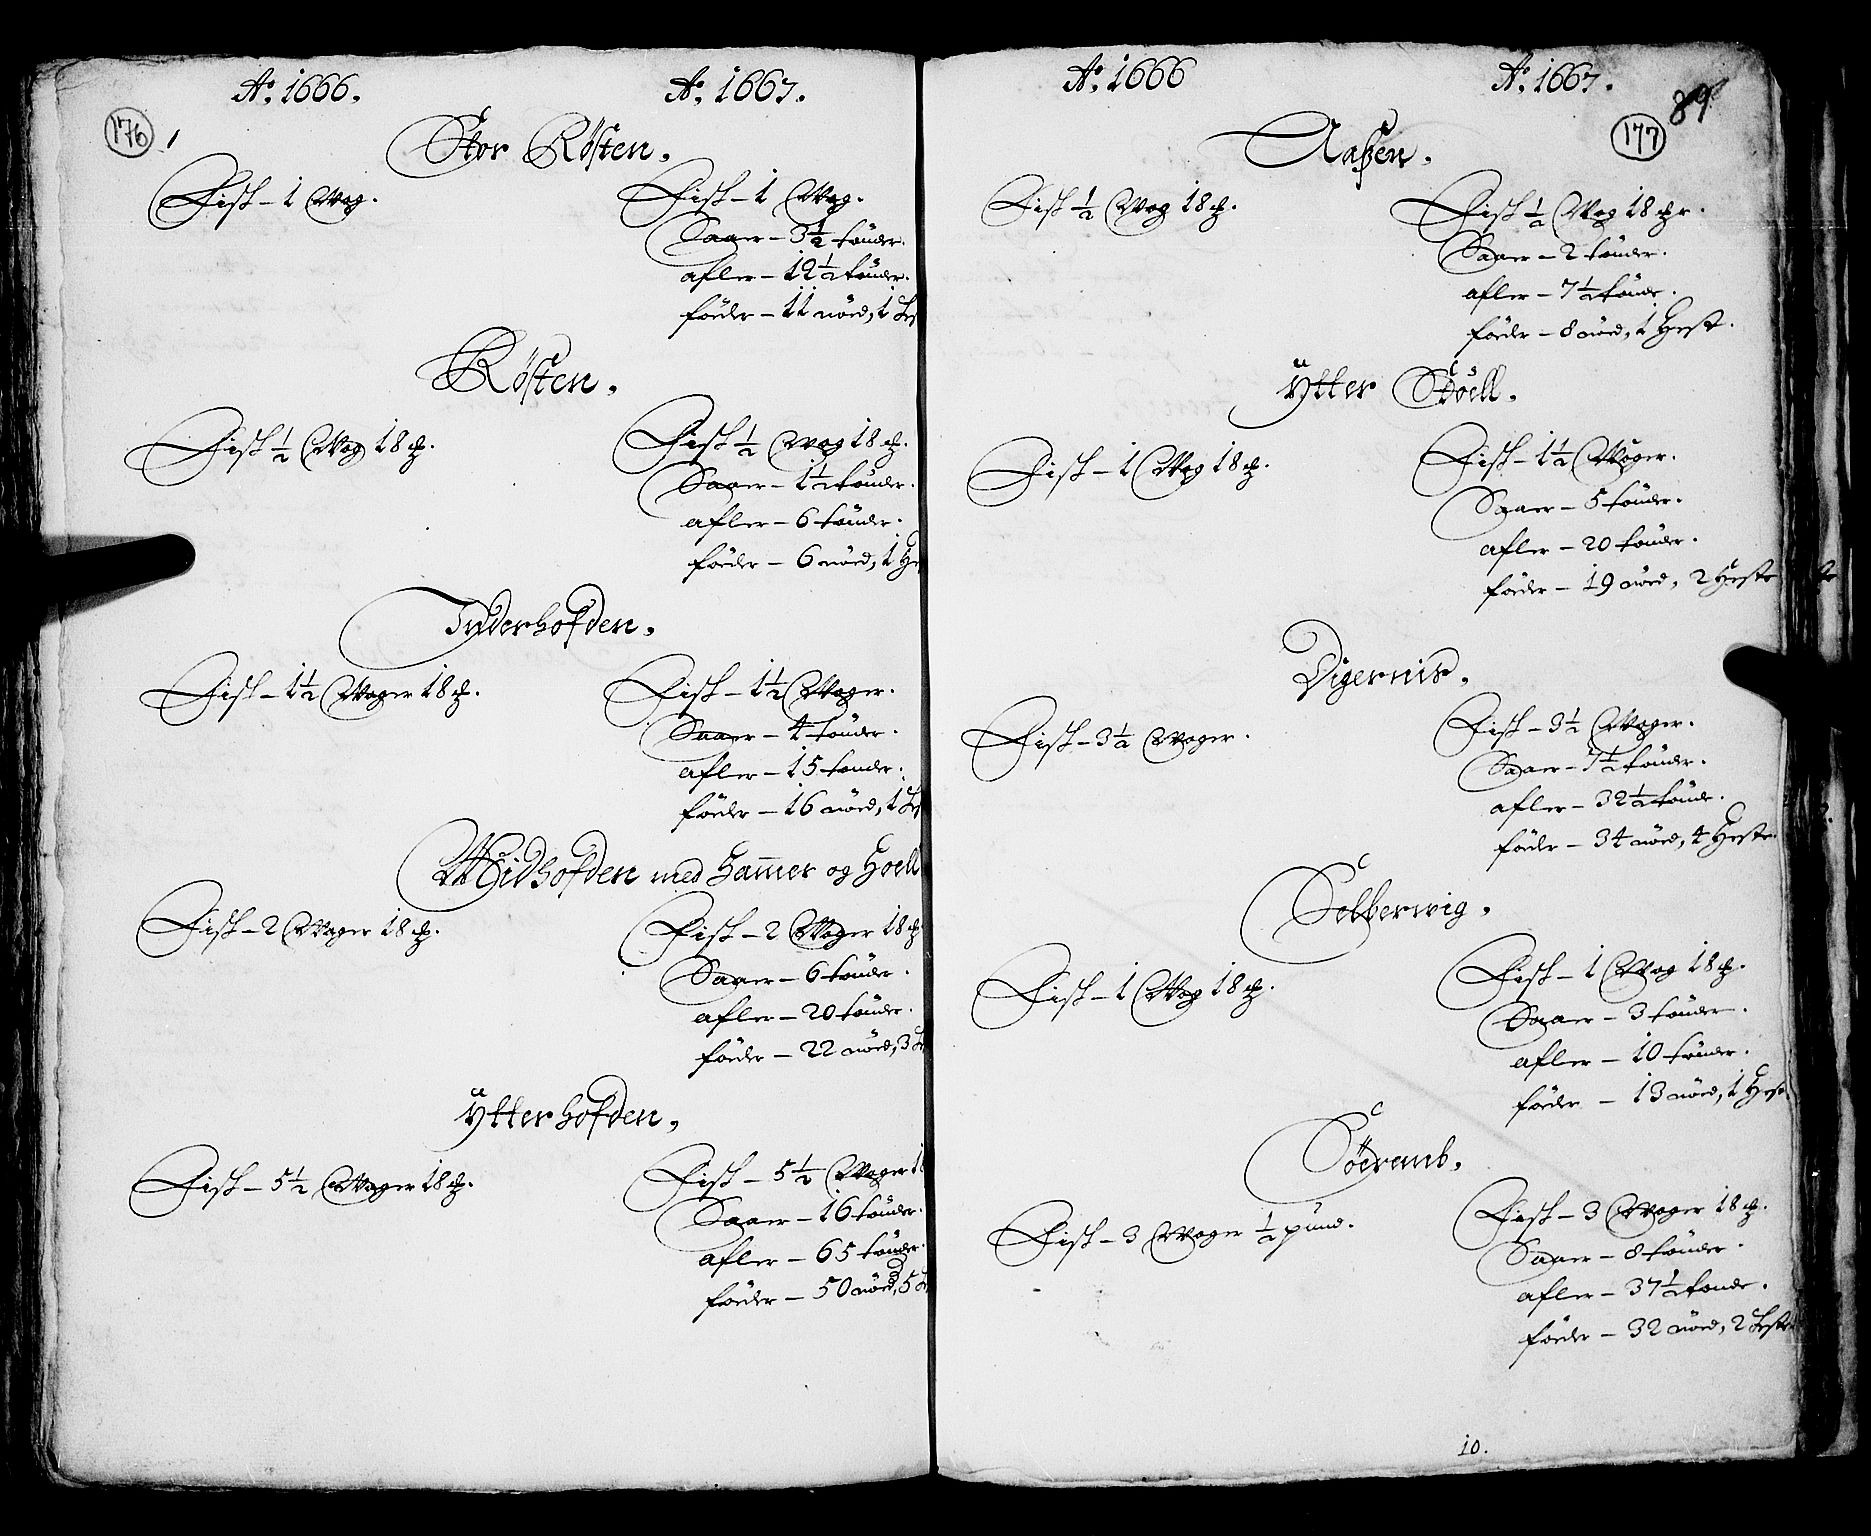 Ao. 1666. Ao. 1667.
176
Stor Rösten.
Fisk - 1 Wog. Fisk - 1 Wog.
Saaer - 3½ tönder.
afler - 12½ tönder.
föeder - 11 nöed, 1
Rösten.
Fisk ½ Wog 18 ℔. Fisk ½ wog 18 ℔.
Saaer - 1½ tönder.
afler - 6 tönder.
föeder - 6 nöed, 1 He
Inderhofden.
Fisk - 1½ Woger 18 ℔. Fisk - 1½ Woger.
Saaer - 4 tönder.
afler - 15 tönder.
föeder - 16 nöed, 1
Midhofden med Hammer og Hoell
Fisk - 2 Woger 18 ℔. Fisk - 2 Woger 18 ℔
Saaer - 6 tönder.
afler - 20 tönder.
föeder - 22 nöed, 3
Ytterhofden.
Fisk - 5½ Woger 18 ℔. Fisk - 5½ Woger 18
Saaer - 16 tönder.
afler - 65 tönder.
föeder - 50 nöed, 5
Ao. 1666 Ao. 1667.
177 89
Aaßen.
Fisk ½ Wog 18 ℔. Fisk ½ Wog 18 ℔.
Saaer - 2 tönder.
afler - 7½ tönde.
föeder - 8 nöed, 1 Hest.
Ytter Stöell.
Fisk - 1 Wog 18 ℔. Fisk - 1½ Woger.
Saaer - 5 tönder.
afler - 20 tönder.
föeder - 19 nöed, 2 Heste
Digernis.
Fisk - 3½ Woger. Fisk - 3½ Woger.
Saaer - 7½ tönder.
afler - 32½ tönde.
föeder - 34 nöed, 4 Heste.
Selberwig.
Fisk - 1 Wog 18 ℔. Fisk - 1 Wog 18 ℔.
Saaer - 3 tönder.
afler - 10 tönder.
föeder - 13 nöed, 1 Hest.
Söeremb.
Fisk - 3 Woger ½ pund. Fisk - 3 Woger 18 ℔.
Saaer - 8 tönder.
afler - 37½ tönde.
föeder - 32 nöed, 2 Heste
10.